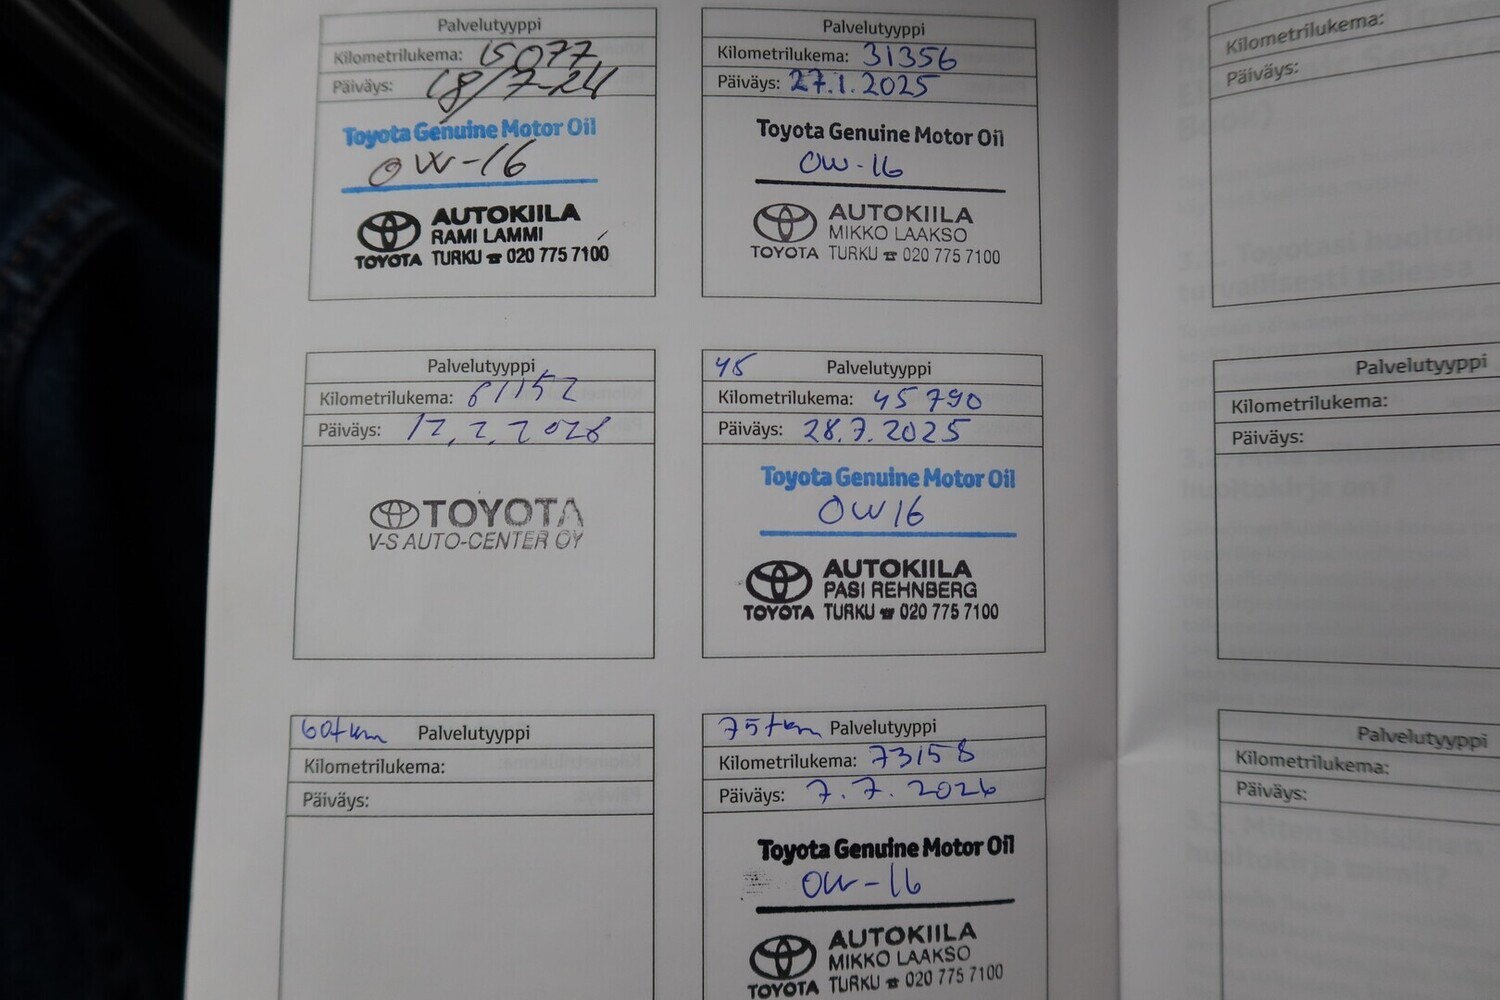 Palvelutyyppi
Kilometrilukema: 15077
Päiväys: 18/7-24
Toyota Genuine Motor Oil
0W-16
AUTOKIILA
RAMI LAMMI
TOYOTA TURKU ☎ 020 775 7100
Palvelutyyppi
Kilometrilukema: 31356
Päiväys: 27.1.2025
Toyota Genuine Motor Oil
0W-16
AUTOKIILA
MIKKO LAAKSO
TOYOTA TURKU ☎ 020 775 7100
Palvelutyyppi
Kilometrilukema: 61152
Päiväys: 12.2.2026
TOYOTA
V-S AUTO-CENTER OY
45 Palvelutyyppi
Kilometrilukema: 45790
Päiväys: 28.7.2025
Toyota Genuine Motor Oil
0W16
AUTOKIILA
PASI REHNBERG
TOYOTA TURKU ☎ 020 775 7100
60tkm Palvelutyyppi
Kilometrilukema:
Päiväys:
75tkm Palvelutyyppi
Kilometrilukema: 73158
Päiväys: 7.7.2026
Toyota Genuine Motor Oil
0W-16
AUTOKIILA
MIKKO LAAKSO
TOYOTA TURKU ☎ 020 775 7100
Kilometrilukema:
Päiväys:
Palvelutyyppi
Kilometrilukema:
Päiväys:
Palvelutyyppi
Kilometrilukema:
Päiväys: